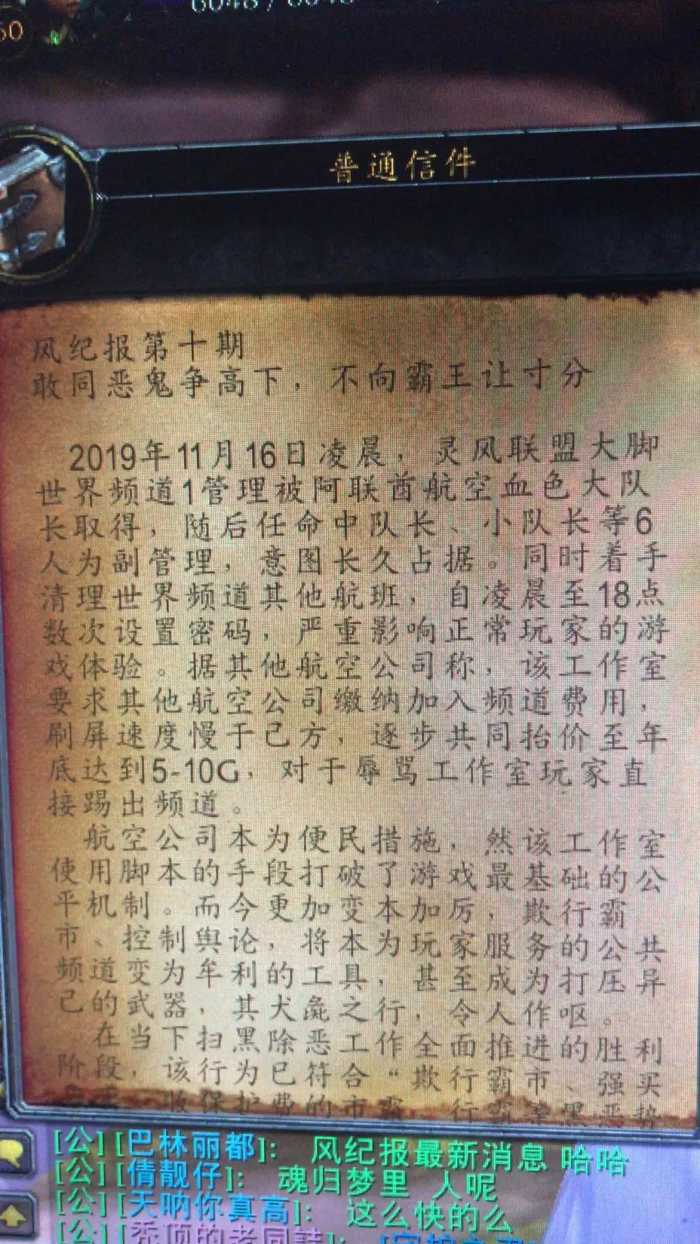 50
6048 / 6048
普通信件
风纪报第十期
敢同恶鬼争高下，不向霸王让寸分
2019年11月16日凌晨，灵风联盟大脚
世界频道1管理被阿联酋航空血色大队
长取得，随后任命中队长、小队长等6
人为副管理，意图长久占据。同时着手
清理世界频道其他航班，自凌晨至18点
数次设置密码，严重影响正常玩家的游
戏体验。据其他航空公司称，该工作室
要求其他航空公司缴纳加入频道费用，
刷屏速度慢于己方，逐步共同抬价至年
底达到5-10G，对于辱骂工作室玩家直
接踢出频道。
航空公司本为便民措施，然该工作室
使用脚本的手段打破了游戏最基础的公
平机制。而今更加变本加厉，欺行霸
市、控制舆论，将本为玩家服务的公共
频道变为牟利的工具，甚至成为打压异
己的武器，其犬彘之行，令人作呕。
在当下扫黑除恶工作全面推进的胜利
阶段，该行为已符合“欺行霸市、强买
收保护费的市霸、行霸
[公][巴林丽都]： 风纪报最新消息 哈哈
[公][倩靓仔]： 魂归梦里 人呢
[公][天呐你真高]： 这么快的么
[公][秃顶的老同